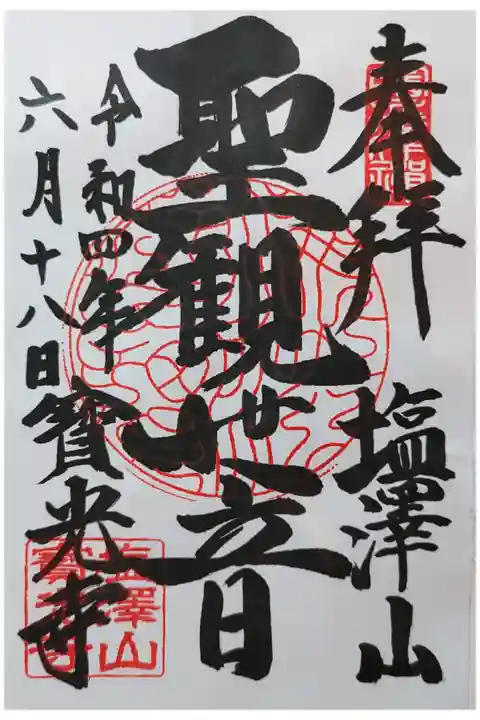 奉拝 塩澤山
聖観世音
令和四年
六月十八日 寳光寺
塩澤山